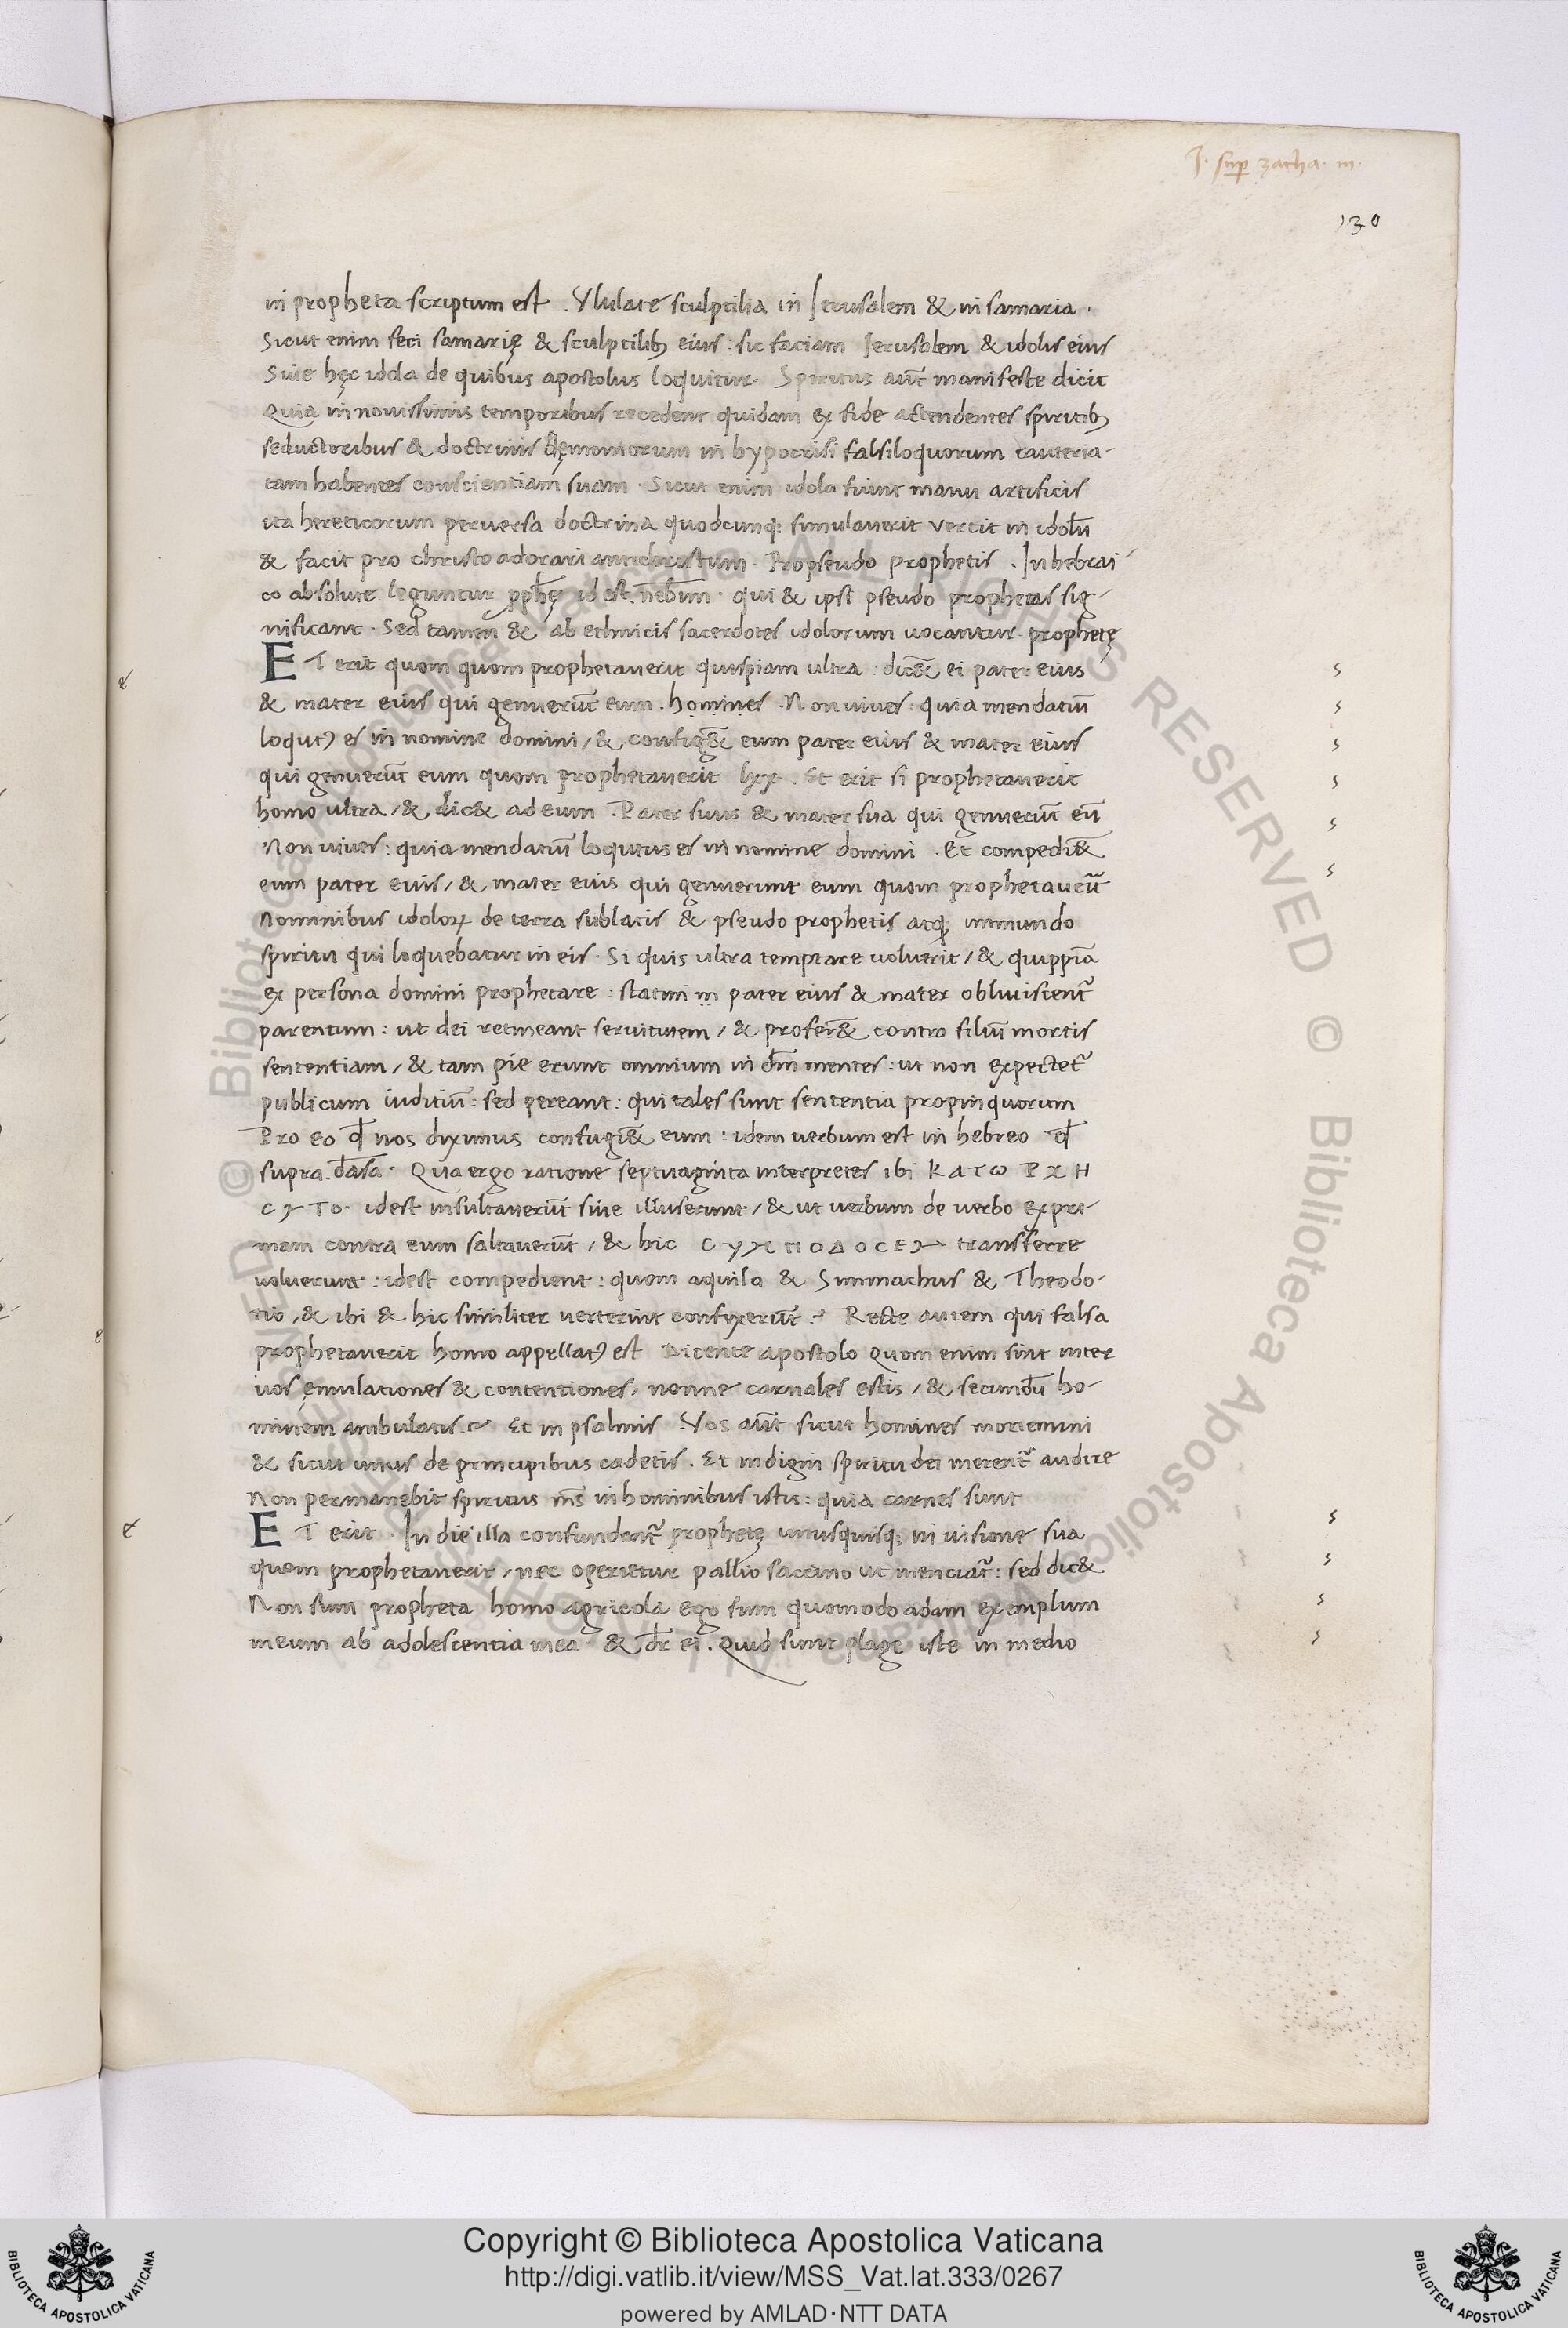 J. sup zacha. III.
130
in propheta scriptum est . Ylulate sculptilia in Jerusalem & in samaria .
Sicut enim feci samarię & sculptilibꝫ eius : sic faciam Jerusalem & idolis eius
Siue hęc idola de quibus apostolus loquitur. Spiritus aūt manifeste dicit
Quia in nouissimis temporibus recedent quidam ex fide attendentes spiritibꝫ
seductoribus & doctrinis dęmoniorum in hypocrisi falsiloquorum cauteria-
tam habentes conscientiam suam . Sicut enim idola fiunt manu artificis
ita hereticorum peruersa doctrina quodcunqꝫ simulauerit vertit in idolū
& facit pro christo adorari antichristum . Pro pseudo prophetis . In hebrai-
co absolute leguntur ꝓphę id est nebim . qui & ipsi pseudo prophetas sig-
nificant . Sed tamen & ab ethnicis sacerdotes idolorum uocantur prophetę
ET erit quom quom prophetauerit quispiam ultra : dic&̄ ei pater eius
& mater eius qui genuerūt eum . homines . Non uiues : quia mendatiū
loqutꝰ es in nomine domini / & config&̄ eum pater eius & mater eius
qui genuerūt eum quom prophetauerit lxx . Et erit si prophetauerit
homo ultra / & dic& ad eum . Pater suus & mater sua qui genuerūt eū
Non uiues : quia mendatiū loqutus es in nomine domini . Et compedi&̄
eum pater eius / & mater eius qui genuerunt eum quom prophetauerit
Nominibus idoloꝝ de terra sublatis & pseudo prophetis atqꝫ immundo
spiritu qui loquebatur in eis . Si quis ultra temptare uoluerit / & quippiā
ex persona domini prophetare : statim m pater eius & mater obliuiscent᷑
parentum : ut dei retineant seruitutem / & profer&̄ contra filiū mortis
sententiam / & tam pie erunt omnium in dm̄ mentes : ut non expectet᷑
publicum iuditiū : sed pereant : qui tales sunt sententia propinquorum
Pro eo qđ nos diximus configi&̄ eum : idem uerbum est in hebreo qđ
supra . dasa . Qua ergo ratione septuaginta interpretes ibi ΚΑΤω Ρ Χ Η
C Υ ΤΟ . idest insultauerūt siue illuserunt / & ut uerbum de uerbo expri-
mam contra eum saltauerūt / & hic C Υ Χ Π Ο Δ Ο C Ε Υ transferre
uoluerunt : idest compedient : quom aquila & Simmachus & Theodo-
tio , & ibi & hic similiter uerterint confixerūt . Recte autem qui falsa
prophetauerit homo appellatꝰ est Dicente apostolo Quom enim sint inter
uos ęmulationes & contentiones / nonne carnales estis / & secundū ho-
minem ambulatis . Et in psalmis . Vos aūt sicut homines moriemini
& sicut unus de principibus cadetis . Et indigni spiritu dei merent᷑ audire
Non permanebit spiritus ms̄ in hominibus istis : quia carnes sunt
ET erit . In die illa confundent᷑ prophetę unusquisqꝫ in uisione sua
quom prophetauerit / nec operietur pallio saccino ut menciat᷑ : sed dic&
Non sum propheta homo agricola ego sum quomodo adam exemplum
meum ab adolescentia mea . & dr̄ ei . Quid sunt plagę iste in medio
Copyright © Biblioteca Apostolica Vaticana
http://digi.vatlib.it/view/MSS_Vat.lat.333/0267
powered by AMLAD·NTT DATA